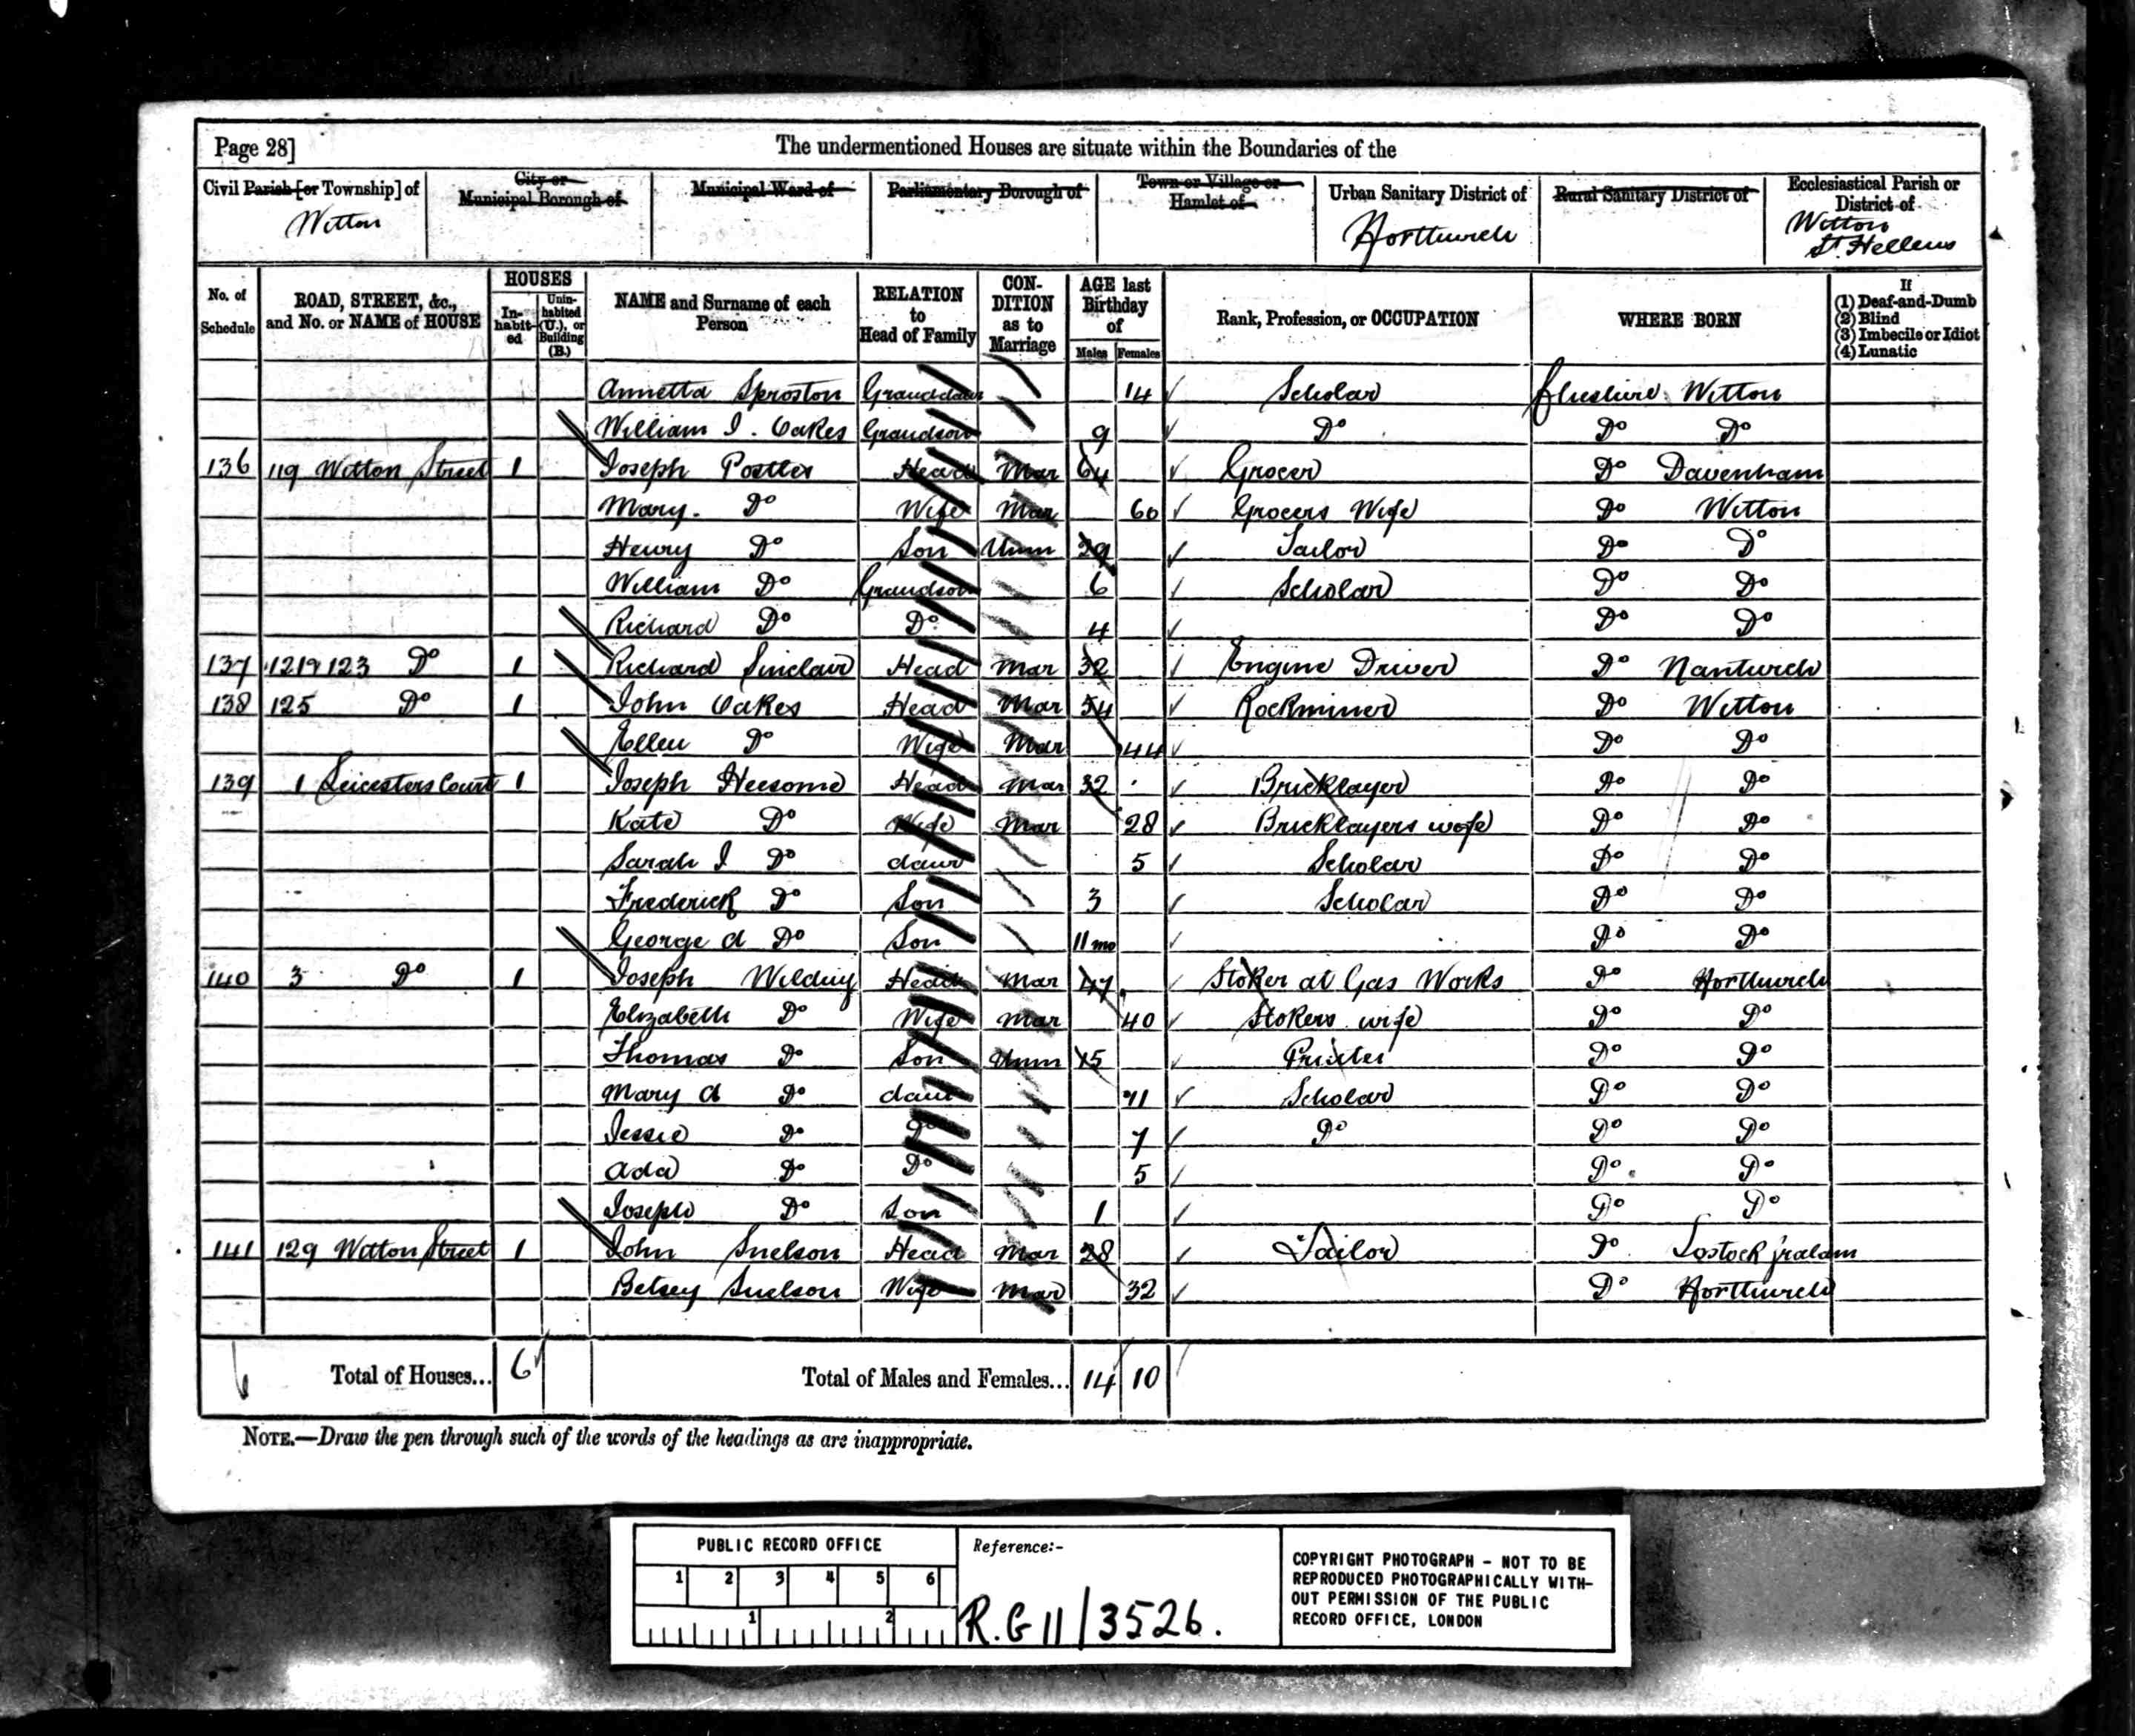 Page 28]
The undermentioned Houses are situate within the Boundaries of the
Civil Parish [or Township] of
Witton
City or
Municipal Borough of
Municipal Ward of
Parliamentary Borough of
Town or Village or
Hamlet of
Urban Sanitary District of
Northwich
Rural Sanitary District of
Ecclesiastical Parish or
District of
Witton
St. Hellens
No. of
Schedule
ROAD, STREET, &c.,
and No. or NAME of HOUSE
HOUSES
In-
habit-
ed
Unin-
habited
(U.), or
Building
(B.)
NAME and Surname of each
Person
RELATION
to
Head of Family
CON-
DITION
as to
Marriage
AGE last
Birthday
of
Males Females
Rank, Profession, or OCCUPATION
WHERE BORN
If
(1) Deaf-and-Dumb
(2) Blind
(3) Imbecile or Idiot
(4) Lunatic
Annetta Sproston Granddaur 14 Scholar Cheshire Witton
William I. Oakes Grandson 9 Do Do Do
136 119 Witton Street 1 Joseph Postles Head Mar 64 Grocer Do Davenham
Mary. Do Wife Mar 60 Grocers Wife Do Witton
Henry Do Son Unm 29 Tailor Do Do
William Do Grandson 6 Scholar Do Do
Richard Do Do 4 Do Do
137 121 & 123 Do 1 Richard Sinclair Head Mar 32 Engine Driver Do Nantwich
138 125 Do 1 John Oakes Head Mar 54 Rockminer Do Witton
Ellen Do Wife Mar 44 Do Do
139 1 Leicesters Court 1 Joseph Heesome Head Mar 32 Bricklayer Do Do
Kate Do Wife Mar 28 Bricklayers wife Do Do
Sarah I Do daur 5 Scholar Do Do
Frederick Do Son 3 Scholar Do Do
George A Do Son 11 mo Do Do
140 3 Do 1 Joseph Wilding Head Mar 47 Stoker at Gas Works Do Northwich
Elizabeth Do Wife Mar 40 Stokers wife Do Do
Thomas Do Son Unm 15 Printer Do Do
Mary A Do daur 11 Scholar Do Do
Jessie Do Do 7 Do Do Do
Ada Do Do 5 Do Do
Joseph Do Son 1 Do Do
141 129 Witton Street 1 John Snelson Head Mar 28 Tailor Do Lostock gralam
Betsey Snelson Wife Mar 32 Do Northwich
6 Total of Houses... 6 Total of Males and Females... 14 10
NOTE.—Draw the pen through such of the words of the headings as are inappropriate.
PUBLIC RECORD OFFICE
1 2 3 4 5 6
1 2
Reference:-
R.G 11/3526.
COPYRIGHT PHOTOGRAPH - NOT TO BE
REPRODUCED PHOTOGRAPHICALLY WITH-
OUT PERMISSION OF THE PUBLIC
RECORD OFFICE, LONDON